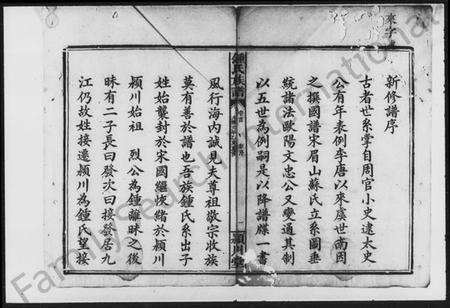 新修譜序
古者世系掌自周官小史逮太史
公有年表例李唐以來虞世南因
之撰國譜宋眉山蘇氏立系圖垂
統諸法歐陽文忠公又變通其制
以五世為例嗣是以降譜牒一書
鍾氏族譜
一
潁川堂
風行海內誠見夫尊祖敬宗收族
莫有善於譜也吾族鍾氏系出子
姓始襲封於宋國繼恢緒於潁川
潁川始祖 烈公為鍾離昧之後
昧有二子長曰發次曰接發居九
江仍故姓接遷潁川為鍾氏望接
FamilySearch International